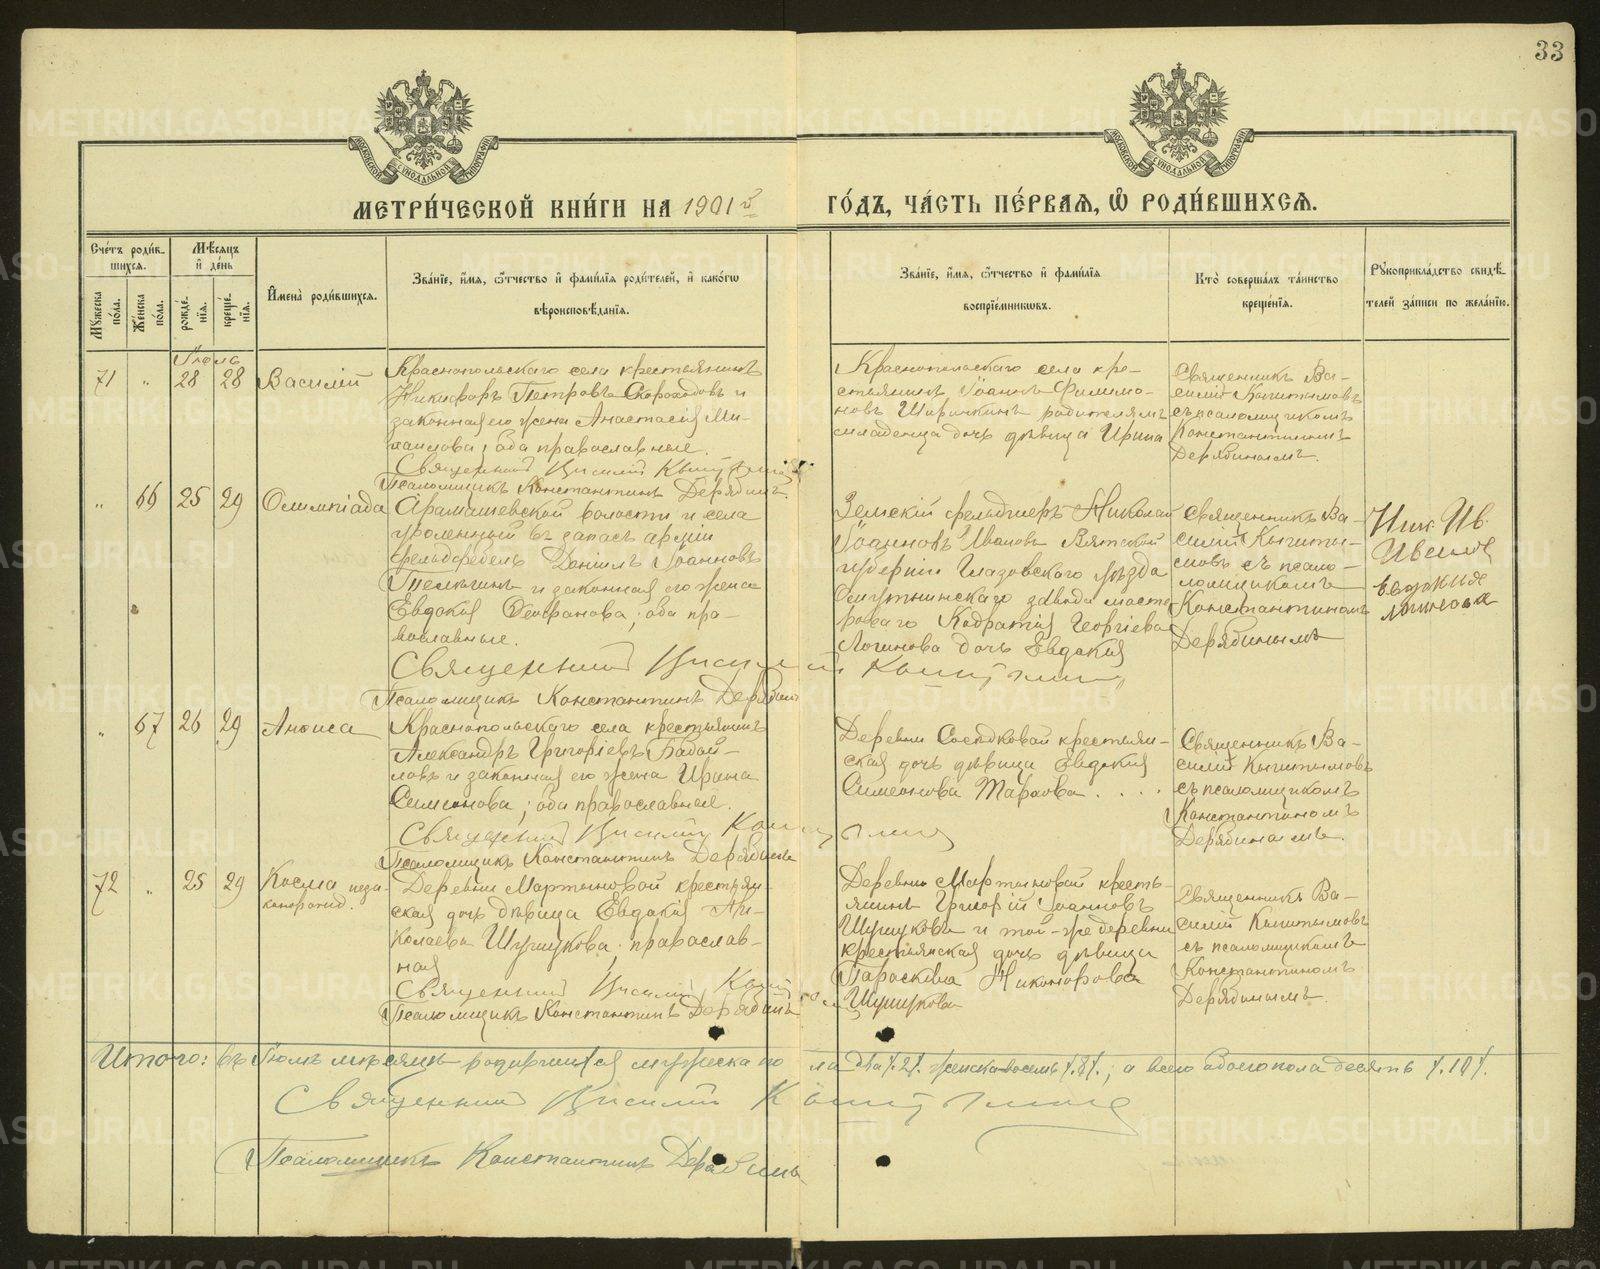 33
МОСКОВСКОЙ СѴНОДАЛЬНОЙ ТИПОГРАФІИ
МОСКОВСКОЙ СѴНОДАЛЬНОЙ ТИПОГРАФІИ
МЕТРИ́ЧЕСКОЙ КНИ́ГИ НА 1901й ГО́ДЪ, ЧА́СТЬ ПЕ́РВАЯ, Ѡ РОДИ́ВШИХСЯ.
Сче́тъ роди́в-
шихся.
Мꙋ́жеска по́ла.
Же́нска по́ла.
Мѣ́сяцъ
и҆ де́нь
рожде́-
нїя.
креще́-
нїя.
И҆мена̀ роди́вшихся.
Зва́нїе, и҆́мя, ѻ҆́тчество и҆ фами́лїя роди́телей, и҆ како́гѡ
вѣроисповѣ́данїя.
Зва́нїе, и҆́мя, ѻ҆́тчество и҆ фами́лїя
воспрїе́мникѡвъ.
Кто̀ соверша́лъ та́инство
креще́нїя.
Рꙋкоприкла́дство свидѣ́-
телей за́писи по жела́нїю.
Іюль
71 " 28 28 Василій
Краснопольскаго села крестьянинъ
Никифоръ Петровъ Скороходовъ и
законная его жена Анастасія Ми-
хаилова; оба православные.
Священникъ Василій Кыштымовъ
Псаломщикъ Константинъ Дерябинъ
Краснопольскаго села кре-
стьянинъ Іоаннъ Филимо-
новъ Ширинкинъ родителямъ
младенца дочь дѣвица Ирина
Священникъ Ва-
силій Кыштымовъ
съ псаломщикомъ
Константиномъ
Дерябинымъ.
" 66 25 29 Олимпіада
Арамашевской волости и села
уволенный въ запасъ арміи
фельдфебель Даніилъ Іоанновъ
Телегинъ и законная его жена
Евдокія Ѳеофанова; оба пра-
вославные.
Священникъ Василій Кыштымовъ
Псаломщикъ Константинъ Дерябинъ
Земскій фельдшеръ Николай
Іоанновъ Ивановъ Вятской
губерніи Глазовскаго уѣзда
Омутнинскаго завода масте-
роваго Кодратія Георгіева
Логинова дочь Евдокія
Священникъ Ва-
силій Кышты-
мовъ съ псало-
мщикомъ
Константиномъ
Дерябинымъ
Ник. Ив.
Ивановъ
Евдокия
Логинова
" 67 26 29 Анѳиса
Краснопольскаго села крестьянинъ
Александръ Григоріевъ Бадай-
ловъ и законная его жена Ирина
Симеонова; оба православные.
Священникъ Василій Кыштымовъ
Псаломщикъ Константинъ Дерябинъ
Деревни Сосѣдковой крестьян-
ская дочь дѣвица Евдокія
Симеонова . . . .
Священникъ Ва-
силій Кыштымовъ
съ псаломщикомъ
Константиномъ
Дерябинымъ.
72 " 25 29 Косма неза-
коннорожд.
Деревни Мартыновой крестьян-
ская дочь дѣвица Евдокія Ни-
колаева Шушукова; православ-
ная
Священникъ Василій Кыштымовъ
Псаломщикъ Константинъ Дерябинъ
Деревни Мартыновой кресть-
янинъ Григорій Іоанновъ
Шушуковъ и той-же деревни
крестьянская дочь дѣвица
Параскева Никонорова
Шушукова
Священникъ Ва-
силій Кыштымовъ
съ псаломщикомъ
Константиномъ
Дерябинымъ.
Итого: въ Іюлѣ мѣсяцѣ родившихся мужеска пола два /.2/. женска восемь /.8/.; а всего обоего пола десять /.10/.
Священникъ Василій Кыштымовъ
Псаломщикъ Константинъ Дерябинъ
METRIKI.GASO-URAL.RU